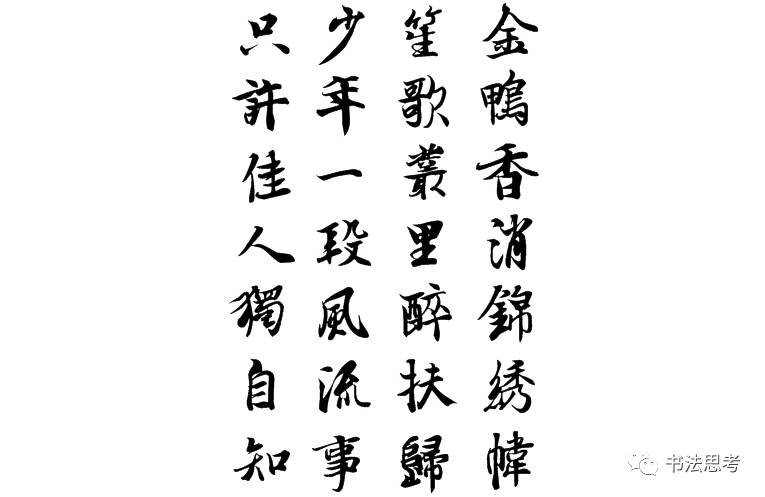 金鴨香消錦綉幃
笙歌叢里醉扶歸
少年一段風流事
只許佳人獨自知
书法思考